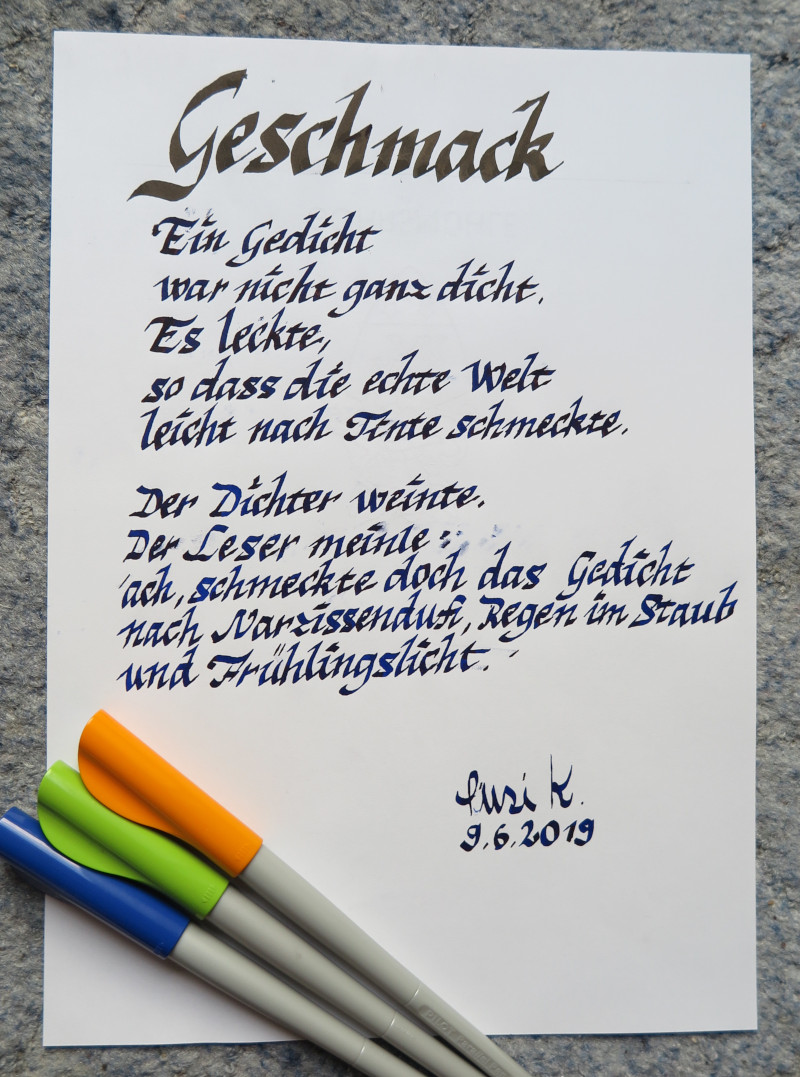 Geschmack
Ein Gedicht
war nicht ganz dicht.
Es leckte,
so dass die echte Welt
leicht nach Tinte schmeckte.
Der Dichter weinte.
Der Leser meinte:
'ach, schmeckte doch das Gedicht
nach Narzissenduft, Regen im Staub
und Frühlingslicht.'
Susi K.
9.6.2019
PILOT